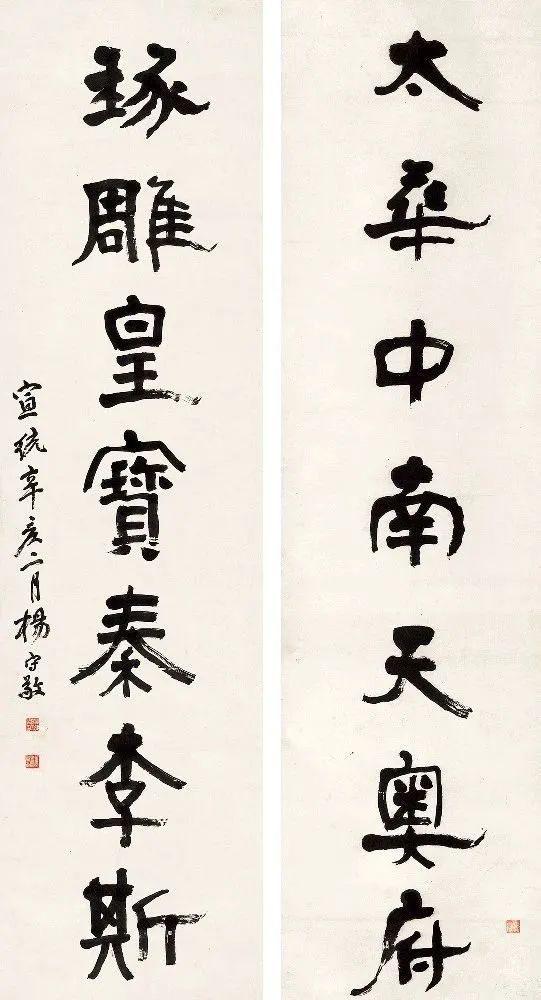 太華中南天奧府
琢雕皇寶秦李斯
宣統辛亥二月楊守敬